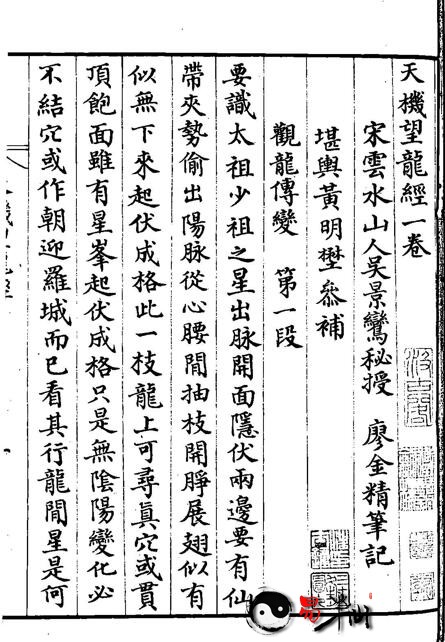 天機望龍經一卷
宋雲水山人吳景鸞秘授 廖金精筆記
堪輿黃明㙯叅補
觀龍傳變 第一段
要識太祖少祖之星出脉開面隱伏兩邊要有仙
帶夾勢偷出陽脉從心腰間抽枝開睜展翅似有
似無下來起伏成格此一枝龍上可尋真穴或貫
頂飽面雖有星峯起伏成格只是無陰陽變化必
不結穴或作朝迎羅城而已看其行龍間星是何